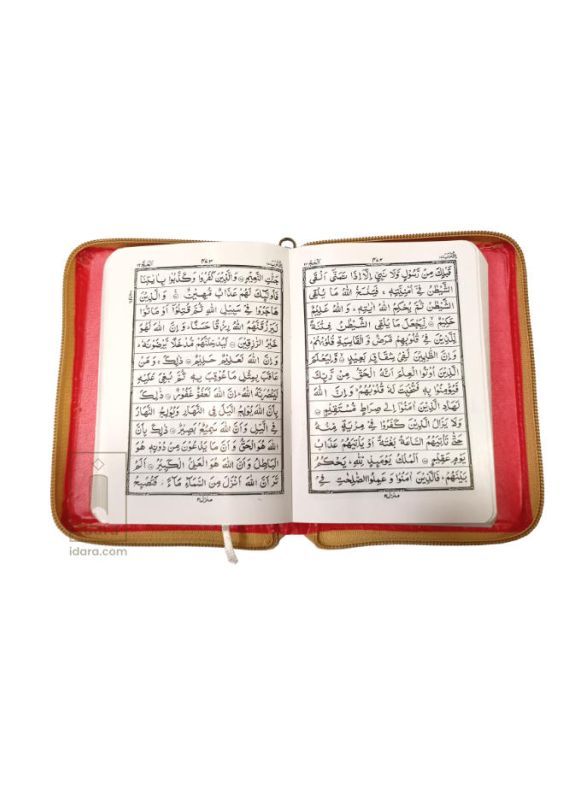 قَبْلِكَ مِنْ رَّسُوْلٍ وَّلَا نَبِيٍّ اِلَّاۤ اِذَا تَمَنّٰۤى اَلْقَى
الشَّيْطٰنُ فِيْۤ اُمْنِيَّتِهٖ ۚ فَيَنْسَخُ اللّٰهُ مَا يُلْقِى
الشَّيْطٰنُ ثُمَّ يُحْكِمُ اللّٰهُ اٰيٰتِهٖ ؕ وَاللّٰهُ عَلِيْمٌ
حَكِيْمٌ ۙ لِّيَجْعَلَ مَا يُلْقِى الشَّيْطٰنُ فِتْنَةً
لِّلَّذِيْنَ فِيْ قُلُوْبِهِمْ مَّرَضٌ وَّالْقَاسِيَةِ قُلُوْبُهُمْ ؕ
وَاِنَّ الظّٰلِمِيْنَ لَفِيْ شِقَاقٍۭ بَعِيْدٍ ۙ وَّلِيَعْلَمَ
الَّذِيْنَ اُوْتُوا الْعِلْمَ اَنَّهُ الْحَقُّ مِنْ رَّبِّكَ
فَيُؤْمِنُوْا بِهٖ فَتُخْبِتَ لَهٗ قُلُوْبُهُمْ ؕ وَاِنَّ اللّٰهَ
لَهَادِ الَّذِيْنَ اٰمَنُوْۤا اِلٰى صِرَاطٍ مُّسْتَقِيْمٍ
وَلَا يَزَالُ الَّذِيْنَ كَفَرُوْا فِيْ مِرْيَةٍ مِّنْهُ
حَتّٰى تَاْتِيَهُمُ السَّاعَةُ بَغْتَةً اَوْ يَاْتِيَهُمْ عَذَابُ
يَوْمٍ عَقِيْمٍ اَلْمُلْكُ يَوْمَئِذٍ لِّلّٰهِ ؕ يَحْكُمُ
بَيْنَهُمْ ؕ فَالَّذِيْنَ اٰمَنُوْا وَعَمِلُوا الصّٰلِحٰتِ فِيْ
منزل۴
جَنّٰتِ النَّعِيْمِ وَالَّذِيْنَ كَفَرُوْا وَكَذَّبُوْا بِاٰيٰتِنَا
فَاُولٰٓئِكَ لَهُمْ عَذَابٌ مُّهِيْنٌ وَالَّذِيْنَ
هَاجَرُوْا فِيْ سَبِيْلِ اللّٰهِ ثُمَّ قُتِلُوْۤا اَوْ مَاتُوْا
لَيَرْزُقَنَّهُمُ اللّٰهُ رِزْقًا حَسَنًا ؕ وَاِنَّ اللّٰهَ لَهُوَ
خَيْرُ الرّٰزِقِيْنَ لَيُدْخِلَنَّهُمْ مُّدْخَلًا يَّرْضَوْنَهٗ ؕ
وَاِنَّ اللّٰهَ لَعَلِيْمٌ حَلِيْمٌ ذٰلِكَ ۚ وَمَنْ
عَاقَبَ بِمِثْلِ مَا عُوْقِبَ بِهٖ ثُمَّ بُغِيَ عَلَيْهِ
لَيَنْصُرَنَّهُ اللّٰهُ ؕ اِنَّ اللّٰهَ لَعَفُوٌّ غَفُوْرٌ ذٰلِكَ
بِاَنَّ اللّٰهَ يُوْلِجُ الَّيْلَ فِي النَّهَارِ وَيُوْلِجُ النَّهَارَ
فِي الَّيْلِ وَاَنَّ اللّٰهَ سَمِيْعٌۢ بَصِيْرٌ ذٰلِكَ بِاَنَّ
اللّٰهَ هُوَ الْحَقُّ وَاَنَّ مَا يَدْعُوْنَ مِنْ دُوْنِهٖ هُوَ
الْبَاطِلُ وَاَنَّ اللّٰهَ هُوَ الْعَلِيُّ الْكَبِيْرُ اَلَمْ
تَرَ اَنَّ اللّٰهَ اَنْزَلَ مِنَ السَّمَآءِ مَآءً ؗ فَتُصْبِحُ
منزل۴
idara.com